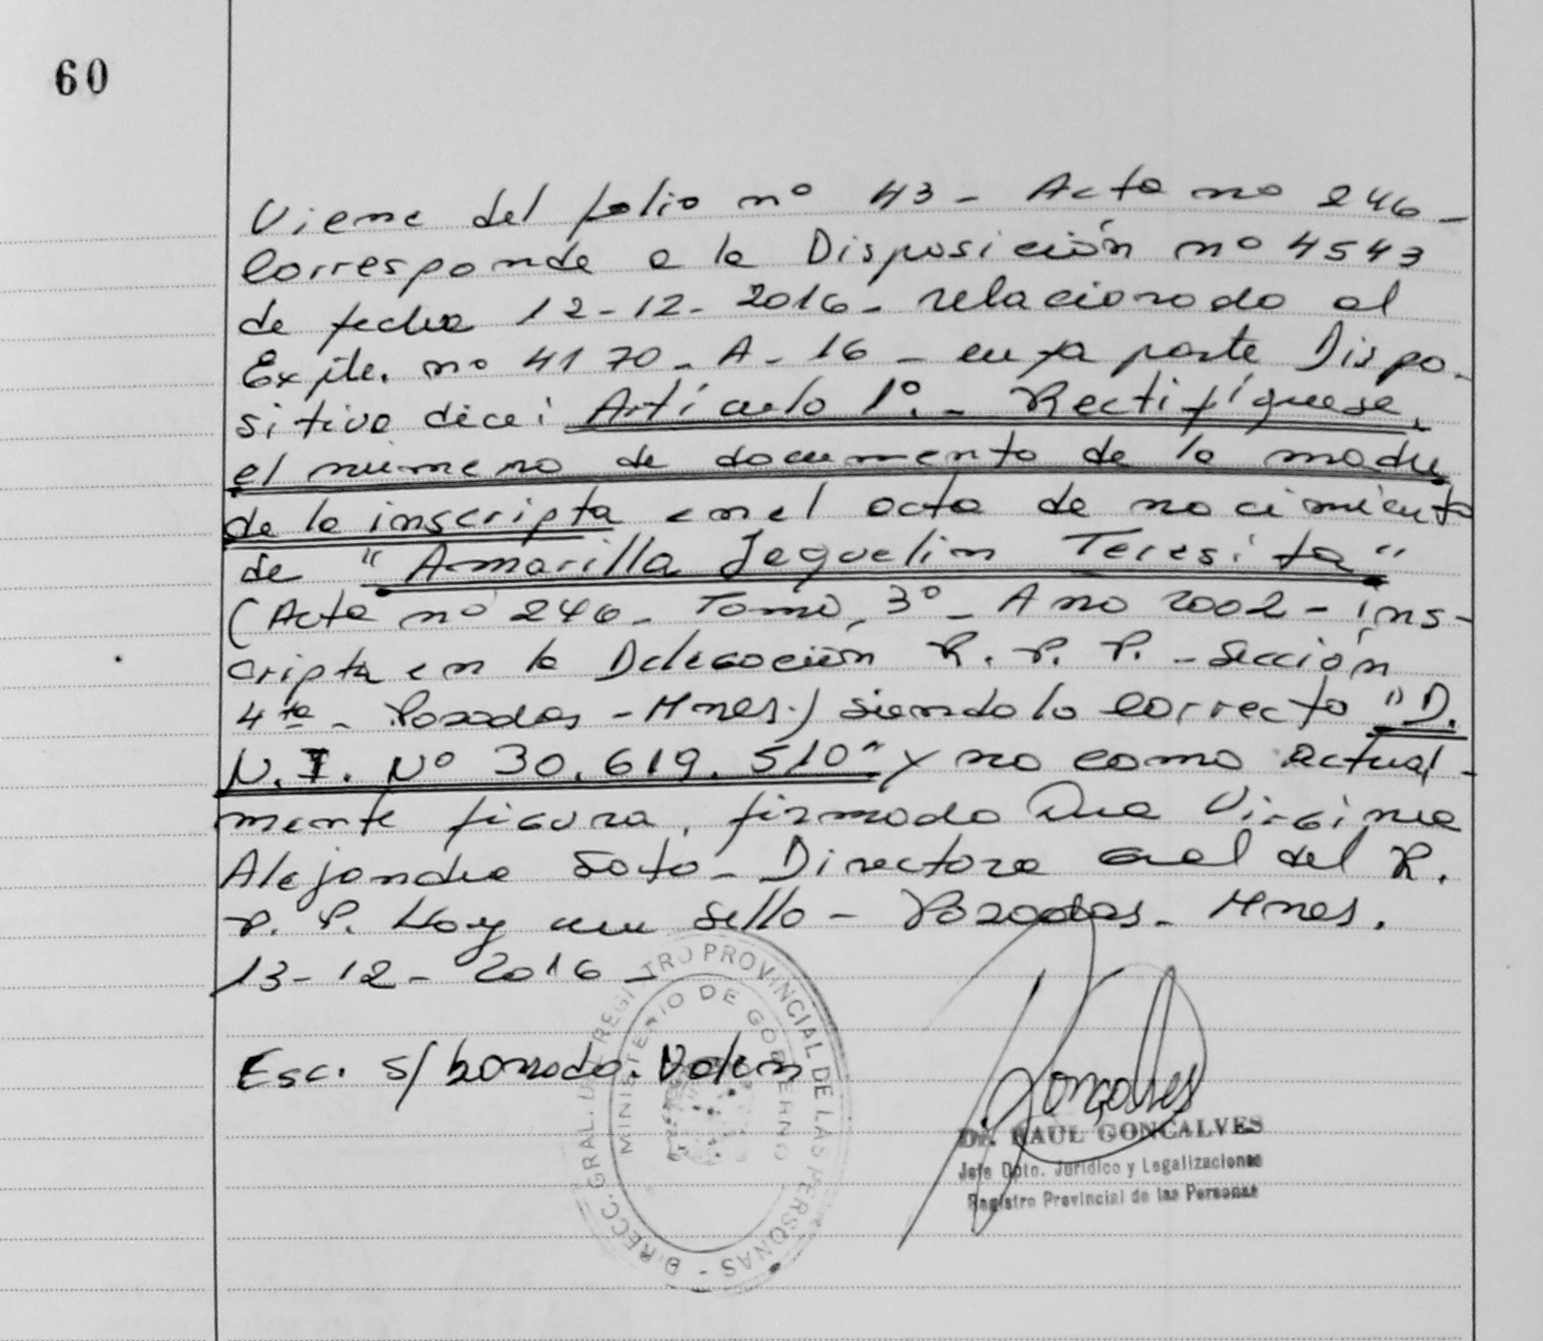 60
Viene del folio nº 43 - Acta nº 246 -
Corresponde a la Disposición nº 4543
de fecha 12-12-2016- relacionado al
Expte. nº 4170 - A - 16 - cuya parte Dispo-
sitiva dice: Artículo 1º.- Rectifíquese,
el número de documento de la madre
de la inscripta en el acta de nacimiento
de "Amarilla Jequelin Teresita"
(Acta nº 246 - Tomo, 3º - Año 2002 - ins-
cripta en la Delegación R. P. P. - Sección
4ta - Posadas - Mnes.) siendo lo correcto "D.
N.I. Nº 30.619.510" y no como actual-
mente figura, firmado Dra Virginia
Alejandra Soto - Directora Gral del R.
P. P. Hay un sello - Posadas - Mnes.
13-12-2016 -
Esc. s/ borrado. Valen
DIRECC. GRAL. DEL REGISTRO PROVINCIAL DE LAS PERSONAS -
MINISTERIO DE GOBIERNO
Gonçalves
Dr. RAUL GONCALVES
Jefe Dpto. Jurídico y Legalizaciones
Registro Provincial de las Personas